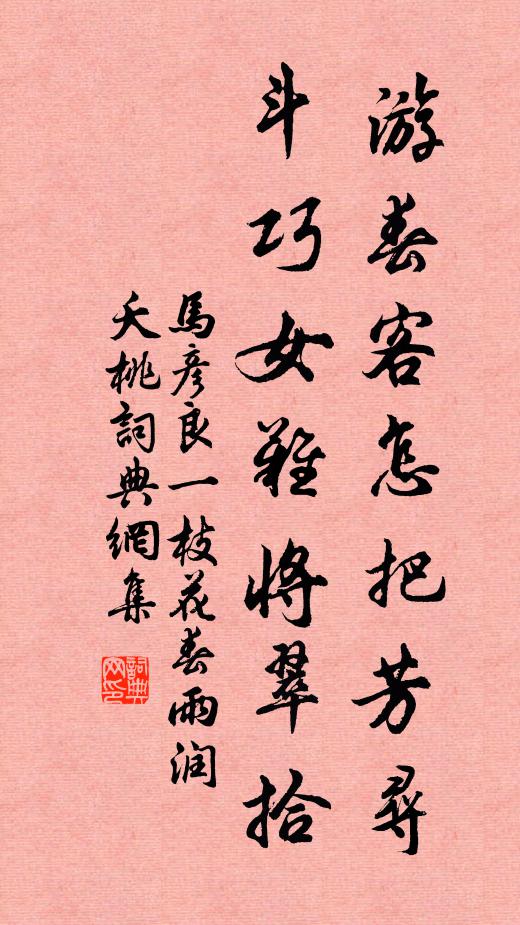 游春客怎把芳尋
斗巧女難將翠拾
馬彥良一枝花春雨润
夭桃詞典網集
詞典網印